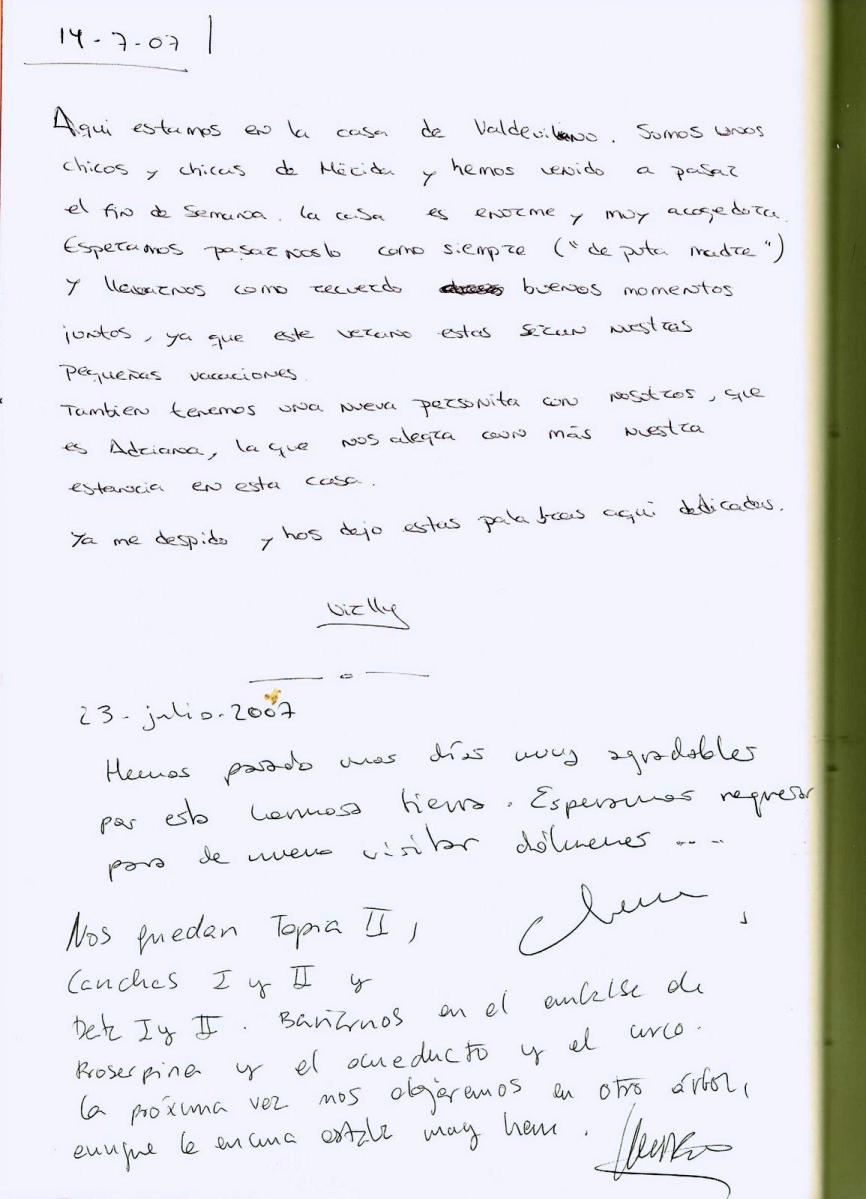 14-7-07
Aqui estamos en la casa de Valdevilano. Somos unos
chicos y chicas de Mérida y hemos venido a pasar
el fin de semana. La casa es enorme y muy acogedora.
Esperamos pasarnoslo como siempre ("de puta madre")
y llevarnos como recuerdo buenos momentos
juntos, ya que este verano estas seran nuestras
pequeñas vacaciones.
Tambien tenemos una nueva personita con nosotros, que
es Adriana, la que nos alegra aun más nuestra
estancia en esta casa.
Ya me despido y hos dejo estas palabras aqui dedicadas.
23-julio-2007
Hemos pasado unos días muy agradables
por esta hermosa tierra. Esperamos regresar
para de nuevo visitar dólmenes ....
Nos quedan Tapia II,
Canchas I y II y
I y II. Bañarnos en el embalse de
Proserpina y el acueducto y el circo.
La próxima vez nos alojaremos en otro árbol,
aunque la encina estaba muy bien.